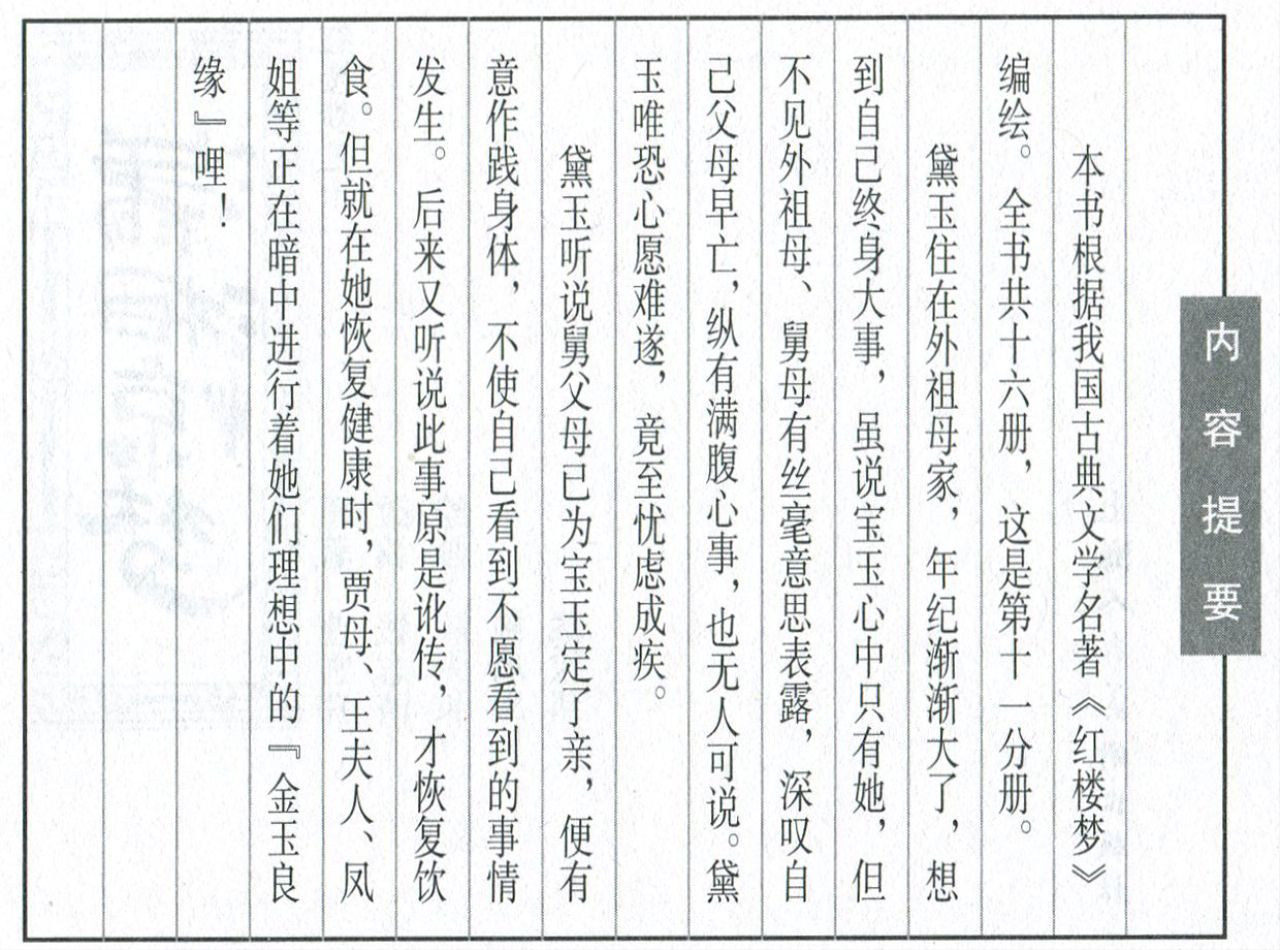 内容提要
本书根据我国古典文学名著《红楼梦》
编绘。全书共十六册，这是第十一分册。
黛玉住在外祖母家，年纪渐渐大了，想
到自己终身大事，虽说宝玉心中只有她，但
不见外祖母、舅母有丝毫意思表露，深叹自
己父母早亡，纵有满腹心事，也无人可说。黛
玉唯恐心愿难遂，竟至忧虑成疾。
黛玉听说舅父母已为宝玉定了亲，便有
意作践身体，不使自己看到不愿看到的事情
发生。后来又听说此事原是讹传，才恢复饮
食。但就在她恢复健康时，贾母、王夫人、凤
姐等正在暗中进行着她们理想中的『金玉良
缘』哩！